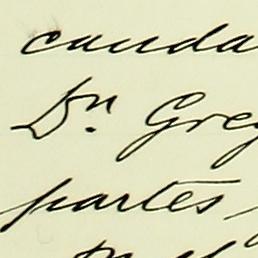 cauda
Dr. Greg
partes